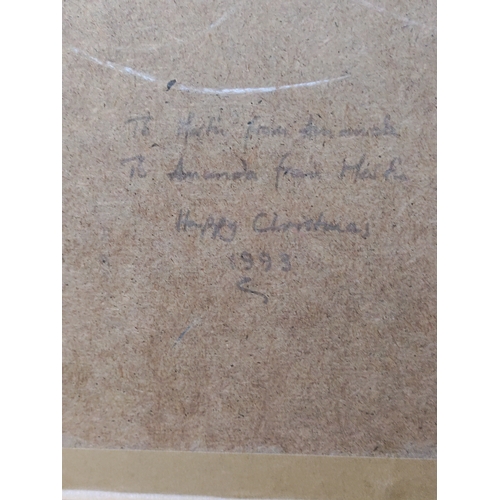 To Martin from Amanda
To Amanda from Martin
Happy Christmas
1993